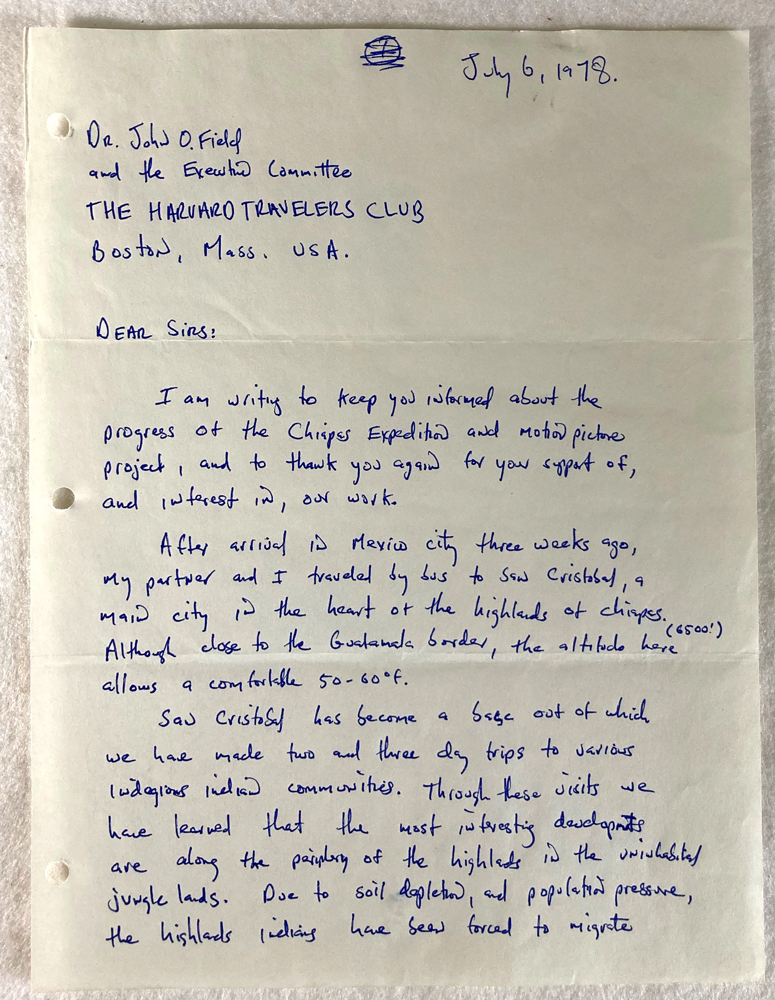 July 6, 1978.
Dr. John O. Field
and the Executive Committee
THE HARVARD TRAVELERS CLUB
Boston, Mass. USA.
DEAR SIRS:
I am writing to keep you informed about the
progress of the Chiapas Expedition and motion picture
project, and to thank you again for your support of,
and interest in, our work.
After arrival in Mexico city three weeks ago,
my partner and I traveled by bus to San Cristobal, a
main city in the heart of the highlands of chiapas.
(6500')
Although close to the Guatamala border, the altitude here
allows a comfortable 50-60°f.
San Cristobal has become a base out of which
we have made two and three day trips to various
indegious indian communities. Through these visits we
have learned that the most interesting developments
are along the periphery of the highlads in the uninhabited
jungle lands. Due to soil depletion, and population pressure,
the highlads indians have been forced to migrate